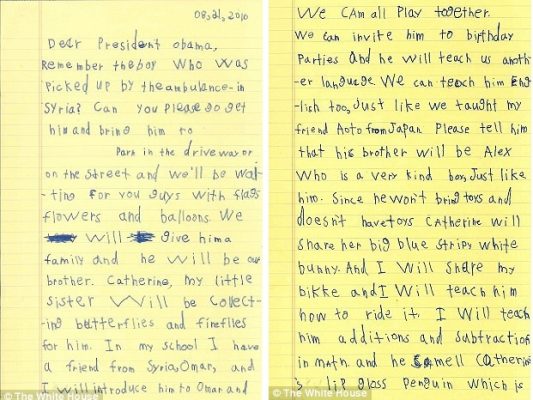 08,21,2010
Dear President obama,
Remember the boy who was
picked up by the ambulance in
Syria? Can you please go get
him and bring him to
Park in the driveway or
on the street and we'll be wai
-ting for you guys with flags
flowers and balloons. We
will give him a
family and he will be our
brother. Catherine, my little
sister will be collect-
-ing butterflies and fireflies
for him. In my school I have
a friend from Syria, Omar, and
I will introduce him to Omar and
© The White House
We CAm all Play together.
We can invite him to birthday
Parties And he will teach us anoth
-er language. We can teach him Eng
-lish too, Just like we taught my
friend Aoto from Japan. Please tell him
that his brother will be Alex
Who is a very kind boy, Just like
him. Since he won't bring toys and
doesn't have toys Catherine will
share her big blue stripy white
bunny. And I Will Share my
bikke and I Will teach him
how to ride it. I Will teach
him additions and subtractions
in math. and he smell Catherine
's lip gloss Penguin which is
© The White House